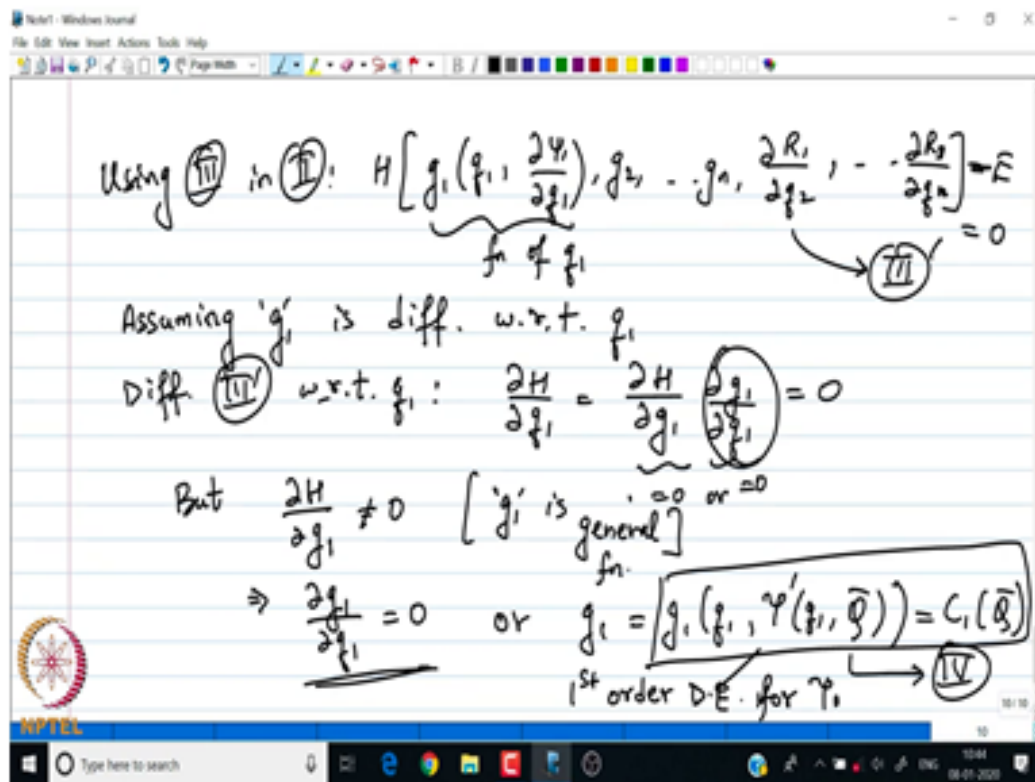 Note1 - Windows Journal
File Edit View Insert Actions Tools Help
Page Width B I
Using (III) in (II): H[g₁(q₁, ∂Ψ₁/∂q₁), g₂, ..gₙ, ∂R₁/∂q₂, - - ∂R₁/∂qₙ] - E
= 0
fn of q₁ → (III)'
Assuming 'g₁' is diff. w.r.t. q₁
Diff. (III)' w.r.t. q₁ : ∂H/∂q₁ = ∂H/∂g₁ ∂g₁/∂q₁ = 0
=0 or =0
But ∂H/∂g₁ ≠ 0 ['g₁' is general fn.]
⇒ ∂g₁/∂q₁ = 0 or g₁ = g₁(q₁, Ψ'(q₁, Q̄)) = C₁(Q̄)
1st order D.E. for Ψ₁ → (IV)
NPTEL
10/10
10
Type here to search
ENG
10:44
08-01-2020